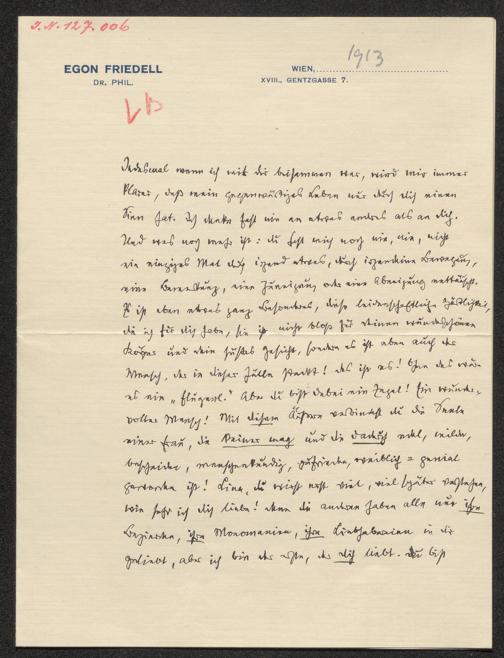 I.N. 127.006
EGON FRIEDELL
DR. PHIL.
WIEN, 1913
XVIII., GENTZGASSE 7.
Jedesmal wenn ich mit dir beisammen war, wird mir immer
klarer, daß mein gegenwärtiges Leben nur durch dich einen
Sinn hat. Ich denke fast nie an etwas andres als an dich.
Und was noch mehr ist: du hast mich noch nie, nie, nicht
ein einziges Mal durch irgend etwas, durch irgendeine Bewegung,
eine Bemerkung, eine Zuneigung oder eine Abneigung enttäuscht.
Es ist eben etwas ganz Besonderes, diese leidenschaftliche Zärtlichkeit,
die ich für dich habe, sie ist nicht bloß für deinen wunderschönen
Körper und dein süßes Gesicht, sondern es ist eben auch der
Mensch, der in dieser Hülle steckt! das ist es! Ohne das wäre
es ein „ Aber du bist dabei ein Engel! Ein wunder-
voller Mensch! Mit diesem Äußern verbindest du die Seele
einer Frau, die keiner mag und die dadurch edel, milde,
bescheiden, menschenkundig, zufrieden, weiblich-genial
geworden ist! Lina, du wirst erst viel, viel später verstehen,
wie sehr ich dich liebe! denn die anderen haben alle nur ihre
ihre Monomanien, ihre Liebhabereien in dir
geliebt, aber ich bin der erste, der dich liebt. Du bist